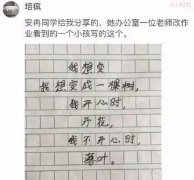 培疯
安冉同学给我分享的，她办公室一位老师改作
业看到的一个小孩写的这个。
我想变
我想变成一棵树，
我开心时，
开花，
我不开心时，
落叶。